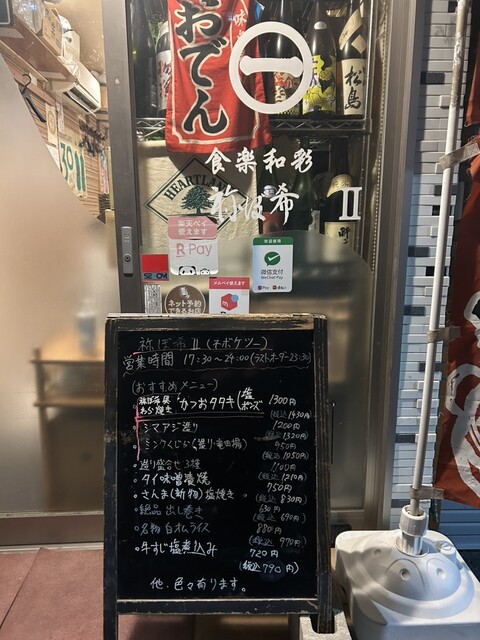 おでん
一
松島
食楽和彩
祢ぼ希 Ⅱ
HEARTLAND
楽天ペイ
使えます
R Pay
微信支付
WeChat Pay
メルペイ使えます
SECOM
ネット予約
できるお店
祢ぼ希Ⅱ(ネボケツー)
営業時間 17:30〜24:00(ラストオーダー23:30)
(おすすめメニュー)
わら焼き かつおタタキ(塩 ポンズ 1300円
(税込1430円)
・シマアジ造り 1200円
(税込1320円)
・ミンクくじら(造り・竜田揚) 950円
(税込1050円)
・造り盛合せ3種 1100円
(税込1210円)
・タイ味噌漬焼 750円
・さんま(新物)塩焼き (税込830円)
・絶品 出し巻き 630円
(税込690円)
・名物 白オムライス 880円
(税込970円)
・牛すじ塩煮込み 720円
(税込790円)
他、色々有ります。